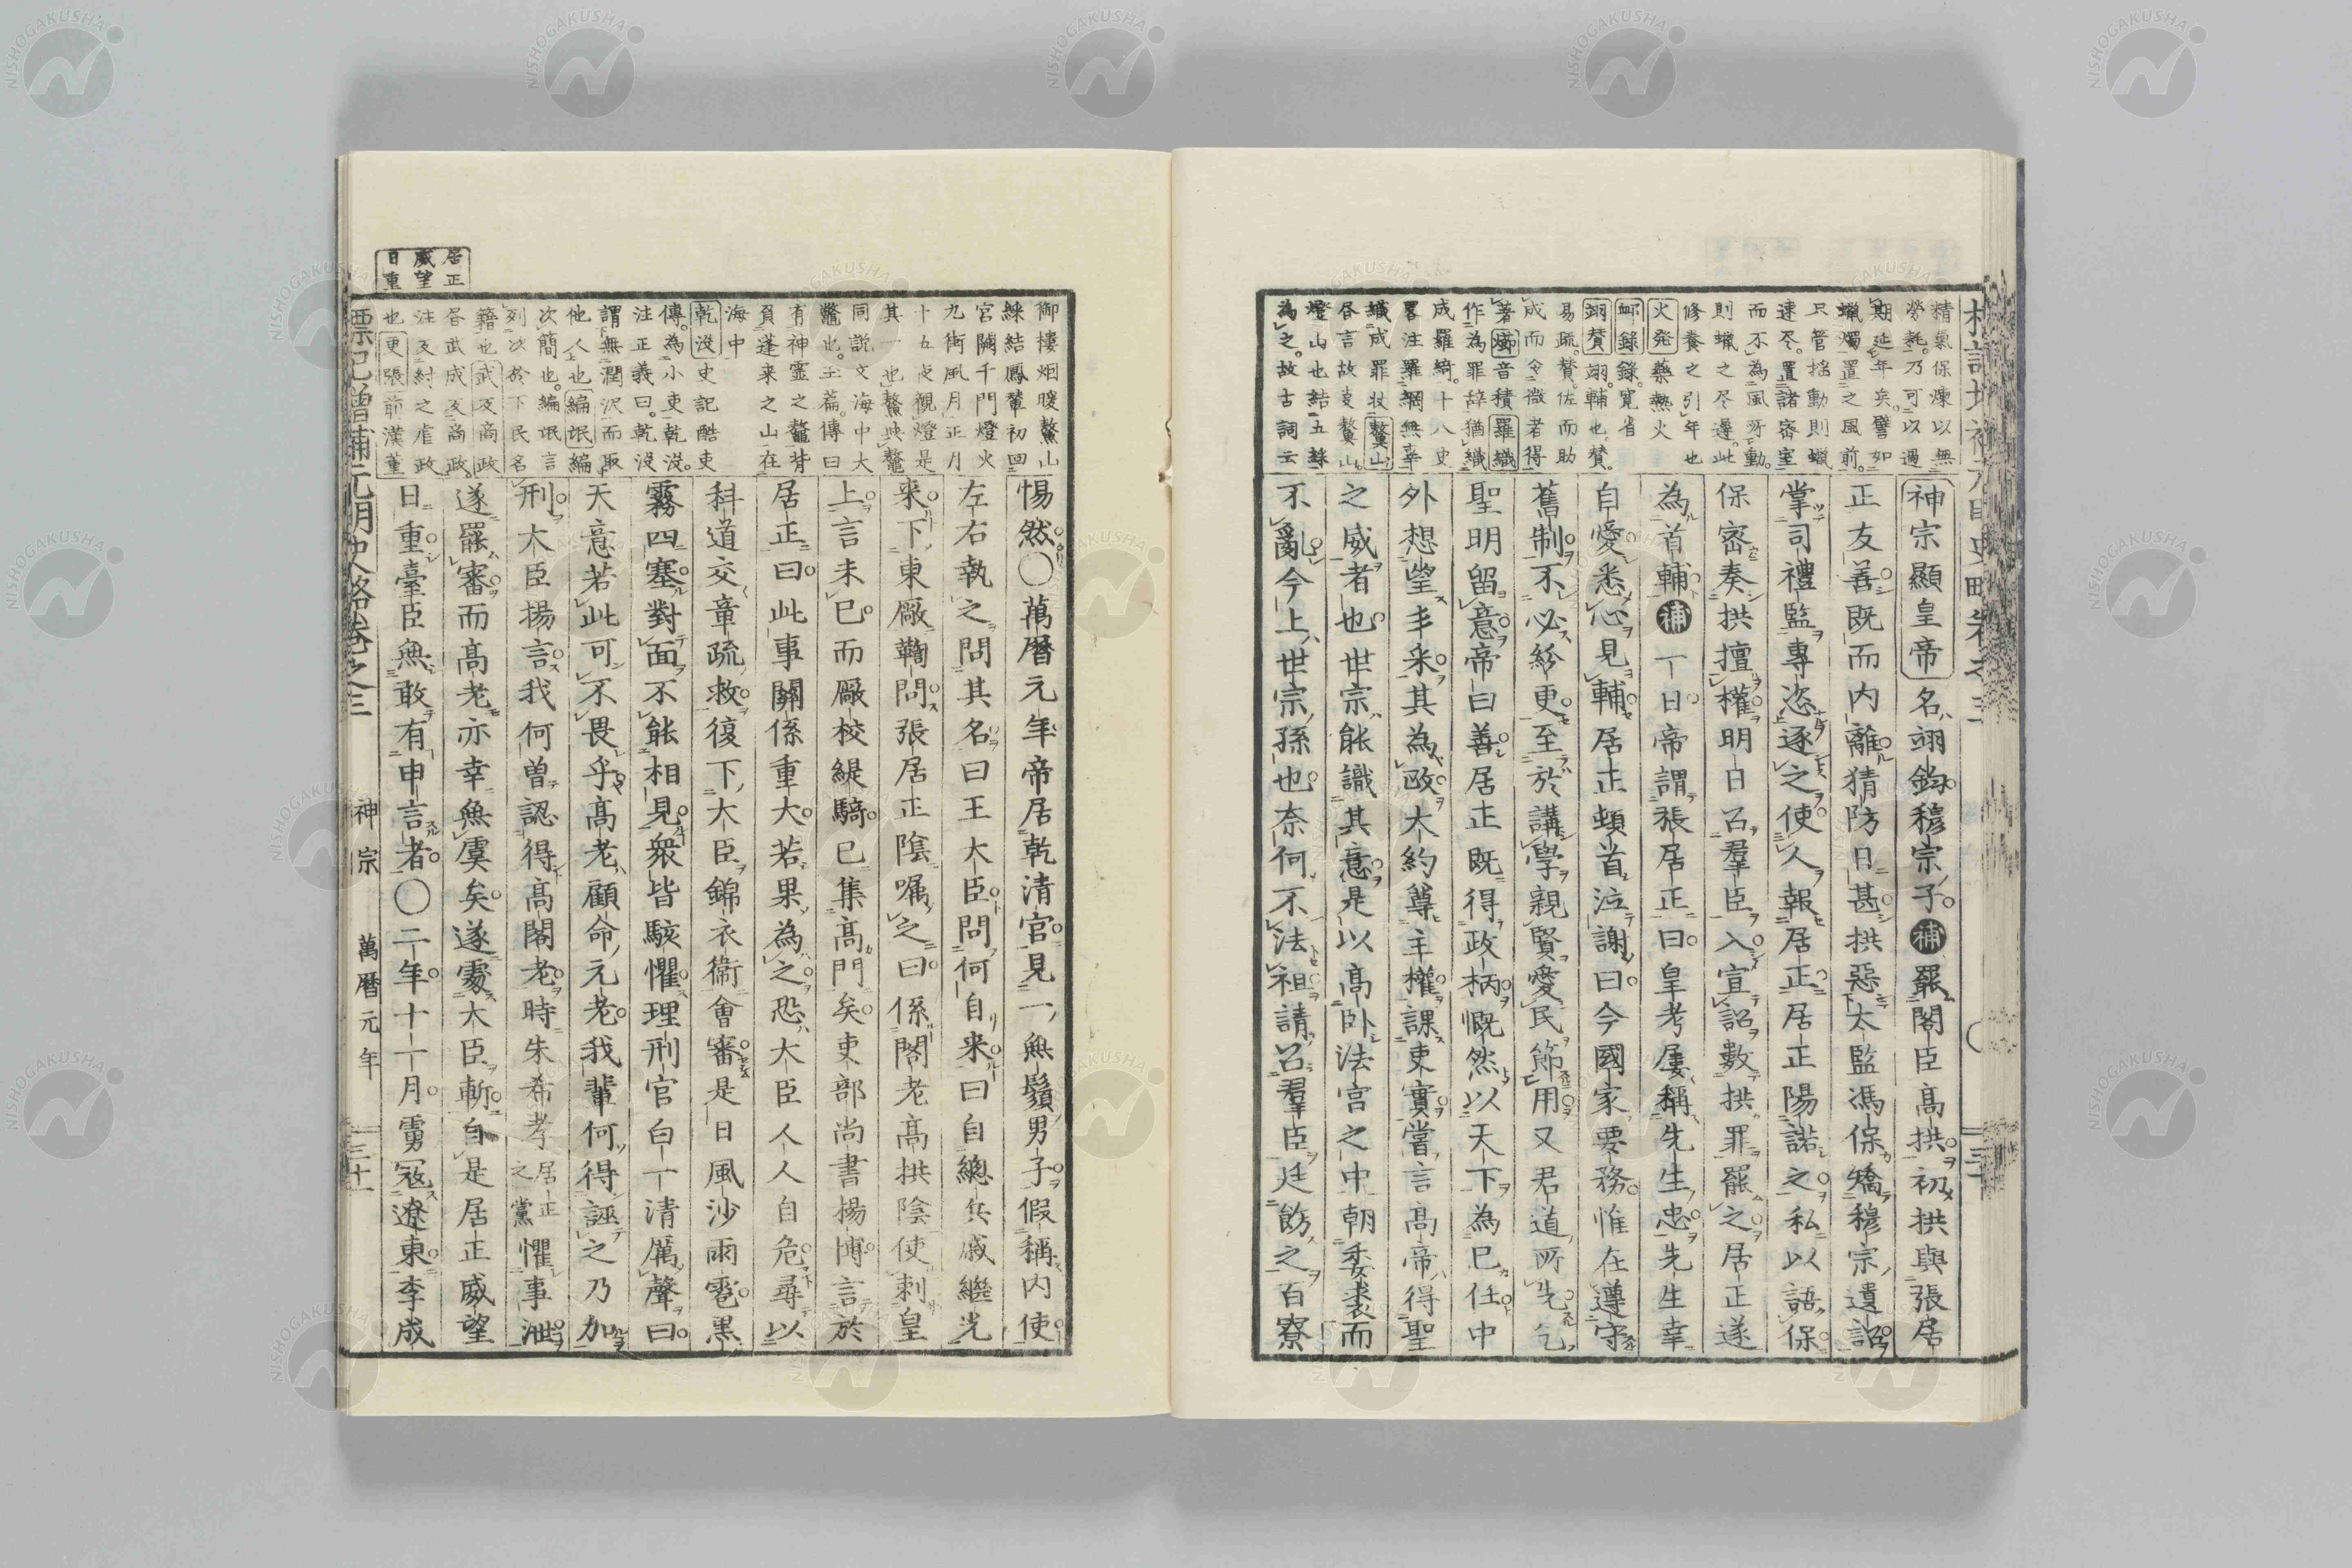 精氣保煉以無
勞耗乃可以過
期延年矣譬如
蠟燭置之風前
只管搖動則蠟
速尽置諸密室
而不為風所動
則蠟之尽遲此
修養之引年也
火発藥熱火
邺錄錄寬省
翊賛翊輔也賛
易疏賛佐而助
成而令微者得
著 音積羅織
作為罪辞猶織
成羅綺十八史
畧注羅網無辜
織成罪狀鰲山
昼言故菱鰲山
燈山也結五綵
為之故古詞云
神宗顯皇帝名翊鈞穆宗子補罷閣臣高拱初拱與張居
正友善既而内離猜防日甚拱惡太監馮保矯穆宗遺詔
掌司禮監專恣逐之使人報居正居正陽諾之私以語保
保密奏拱擅權明日召羣臣入宣詔數拱罪罷之居正遂
為首輔補一日帝謂張居正曰皇考屢稱先生忠先生幸
自愛悉心見輔居正頓首泣謝曰今國家要務惟在遵守
舊制不必紛更至於講學親賢愛民節用又君道所先乞
聖明留意帝曰善居正既得政柄慨然以天下為己任中
外想望丰采其為政大約尊主權課吏實嘗言高帝得聖
之威者也世宗能識其意是以高卧法宮之中朝委裘而
不亂今上世宗孫也奈何不法祖請召羣臣廷飭之百寮
居正
威望
日重
御樓烟暖鰲山
綵結鳳輦初回
宮闕千門燈火
九街風月正月
十五夜觀燈是
其一也鰲與鼇
同說文海中大
鼈也玉篇傳曰
有神靈之鼇背
負蓬来之山在
海中
乾没史記酷吏
傳為小吏乾没
注正義曰乾没
謂無潤沢而取
他人也編氓編
次簡也編氓言
列次於下民名
籍也武及商政
昏武成及商政
注反紂之虐政
也更張前漢董
惕然○萬曆元年帝居乾清宮見一無鬚男子假稱内使
左右執之問其名曰王大臣問何自来曰自總兵戚繼光
来下東厰鞫問張居正陰嘱之曰係閣老高拱陰使刺皇
上言未已而厰校緹騎已集高門矣吏部尚書揚博言於
居正曰此事關係重大若果為之恐大臣人人自危尋以
科道交章疏救復下大臣錦衣衞會審是日風沙雨雹黑
霧四塞對面不能相見衆皆駭懼理刑官白一清厲聲曰
天意若此可不畏乎高老顧命元老我輩何得誣之乃加
刑大臣揚言我何曽認得高閣老時朱希孝居正之黨懼事泄
遂罷審而高老亦幸無虞矣遂處大臣斬自是居正威望
日重臺臣無敢有申言者○二年十一月虜寇遼東李成
標記增補元明史略卷之三 神宗 萬曆元年 三十一